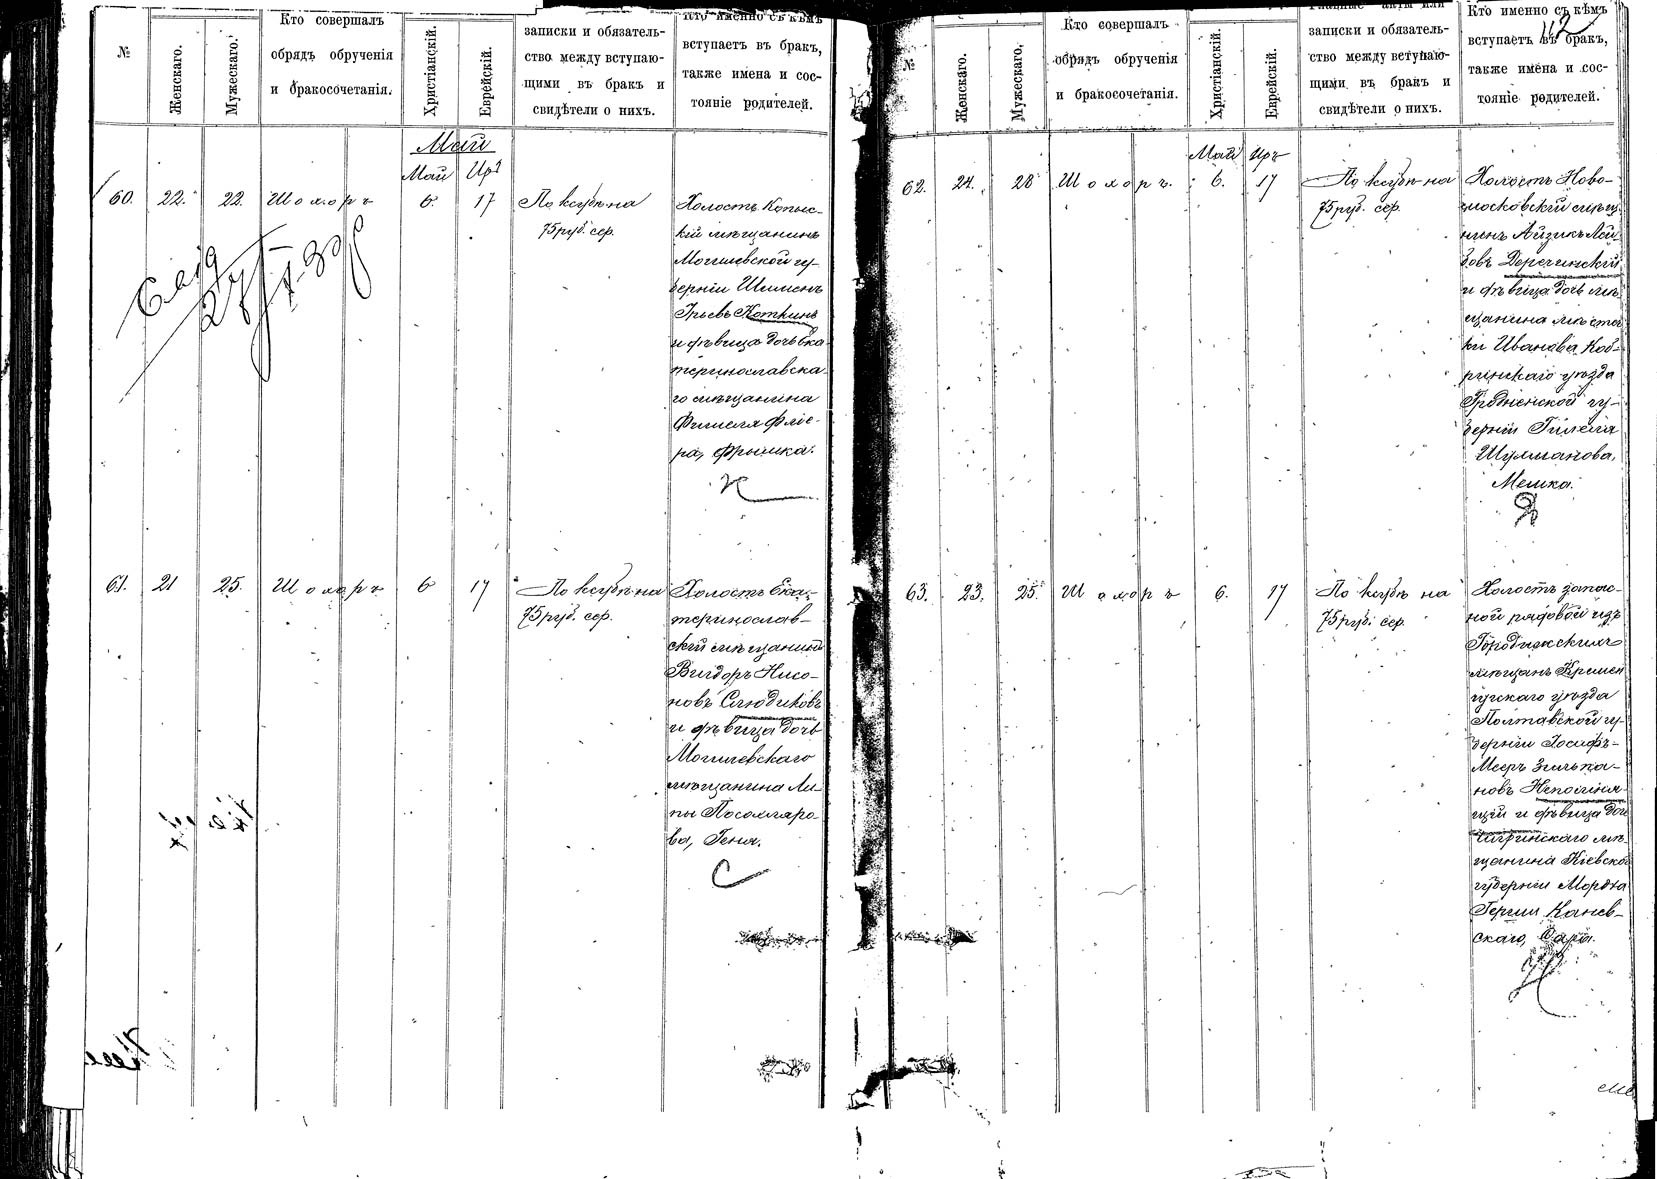 №
Женскаго.
Мужескаго.
Кто совершалъ
обрядъ обрученія
и бракосочетанія.
Христіанскій.
Еврейскій.
записки и обязатель-
ство между вступаю-
щими въ бракъ и
свидѣтели о нихъ.
Кто именно съ кѣмъ
вступаетъ въ бракъ,
также имена и сос-
тояніе родителей.
Май
Май Иръ
60. 22. 22. Шохоръ 6. 17
По ксубѣ на
75 руб. сер.
Холостъ Копыс-
кій мѣщанинъ
Могилевской гу-
берніи Шлиомъ
Гирьевъ Коткинъ
и дѣвица дочь Ека-
теринославска-
го мѣщанина
Фишеля Фліе-
ра, Фрымка.
61. 21 25. Шохоръ 6 17
По ксубѣ на
75 руб. сер.
Холостъ Ека-
теринослав-
скій мѣщанинъ
Вигдоръ Нисо-
новъ Слюдиковъ
и дѣвица дочь
Могилевскаго
мѣщанина Ли-
пы Посамаро-
ва, Геня.
№
Женскаго.
Мужескаго.
Кто совершалъ
обрядъ обрученія
и бракосочетанія.
Христіанскій.
Еврейскій.
главные акты или
записки и обязатель-
ство между вступаю-
щими въ бракъ и
свидѣтели о нихъ.
Кто именно съ кѣмъ
вступаетъ въ бракъ,
также имена и сос-
тояніе родителей.
112
Май Иръ
62. 24. 28 Шохоръ. 6. 17
По ксубѣ на
75 руб. сер.
Холостъ Ново-
московскій мѣща-
нинъ Айзикъ Лей-
бовъ Деречинскій
и дѣвица дочь мѣ-
щанина мѣстеч-
ки Иванова Коб-
ринскаго уѣзда
Гродненской гу-
берніи Гилеля
Шулманова,
Мешка.
63. 23. 25. Шохоръ 6. 17
По ксубѣ на
75 руб. сер.
Холостъ запас-
ной рядовой изъ
Городижскихъ
мѣщанъ Кремен
чугскаго уѣзда
Полтавской гу-
берніи Іосифъ-
Мееръ Зилька-
новъ Непомня-
щій и дѣвица дочь
Чигринскаго мѣ-
щанина Кіевской
губерніи Мордха
Герши Канев-
скаго, Сара.